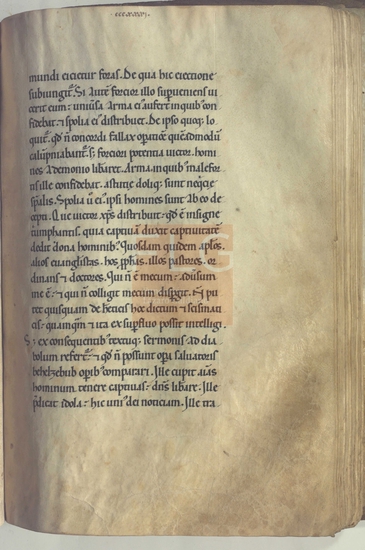 ccccxxxvi.
mundi eicietur foras. De qua hic eiectione
subiungit᷑. Si aute᷑ fortior illo superueniens ui
cerit eum: uniu᷑sa arma ei᷑ aufert in quib᷑ con
fidebat. ⁊ spolia ei᷑ distribuet. De ipso quoq; lo
quit᷑. qd̄ n̄ concordi fallax operatiōe quēadmodū
calūpniabant᷑. s; fortiori potentia uictor. homi
nes a demonio lib̄aret. Arma in quib᷑ male for
tis ille confidebat. astutie doliq; sunt neq̄tie
sp̄alis. Spolia ū ei᷑ ipsi homines sunt ab eo de
cepti. Que uictor xp̄s distribuit. qd̄ ē insigne
triumphantis. quia captiuā duxit captiuitatē
dedit dona hominib᷑. Quosdam quidem ap̄los.
alios euanḡlistas. hos p̄phas. illos pastores. or
dinans ⁊ doctores. Qui n̄ ē mecum: adūsum
me ē. ⁊ qui n̄ colligit mecum disp̄git. Nō pu
tet quisquam de h̄eticis hoc dictum ⁊ scismati
cis. quamq̄m ⁊ ita ex sup̄fluo possit intelligi.
S; ex consequentib᷑ textuq; sermonis ad dia
bolum refert᷑. ⁊ qd̄ n̄ possint op̄a saluatoris
behelzebub op̄ib᷑ comparari. Ille cupit aīas
hominum tenere captiuas. dn̄s lib̄are. Ille
p̄dicat idola. hic uni᷑ dei noticiam. Ille tra